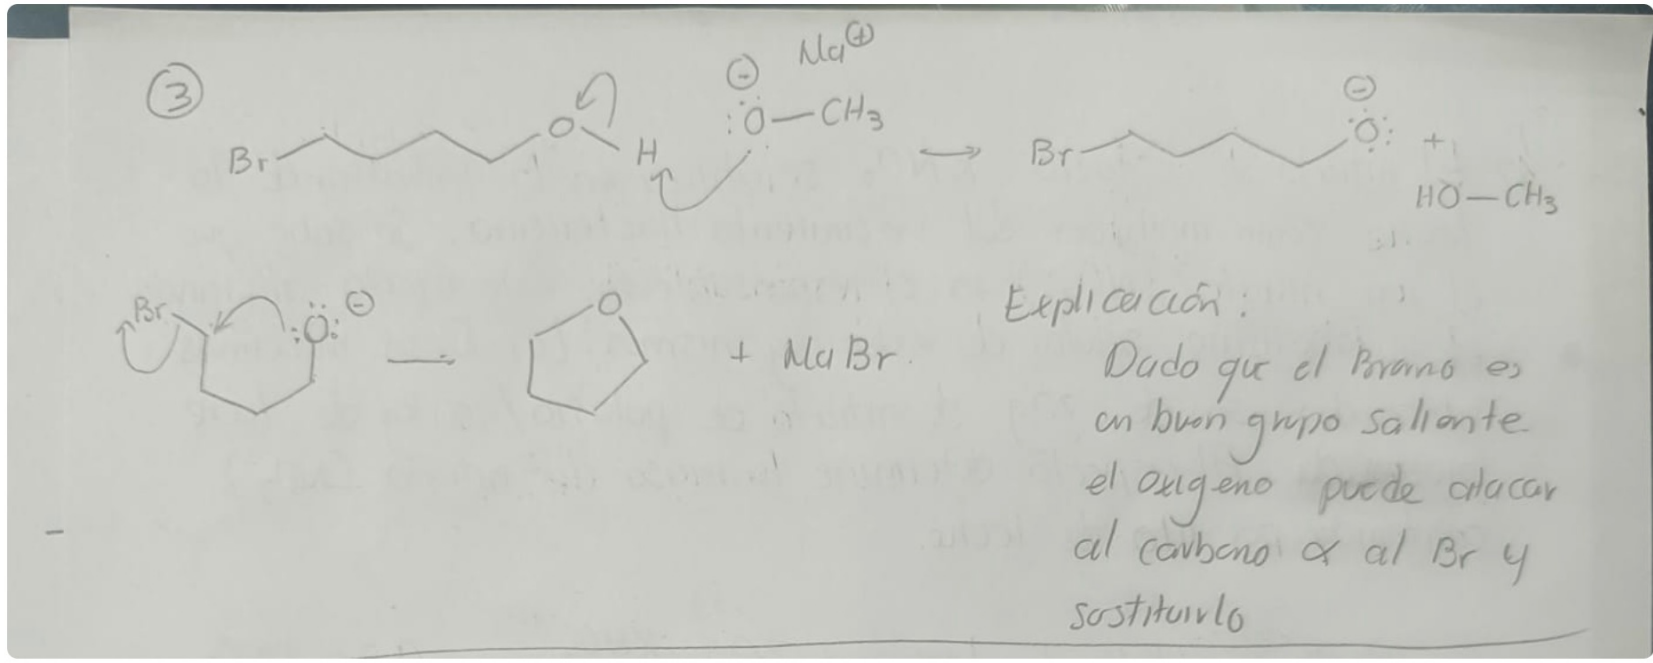 ③
Na⊕
⊖
Br
O
H
:Ö—CH₃
⟷
Br
⊖
:Ö:
+
HO—CH₃
Br
:Ö: ⊖
⟶
O
+ NaBr.
Explicación:
Dado que el Bromo es
un buen grupo saliente
el oxigeno puede atacar
al carbono α al Br y
sustituirlo